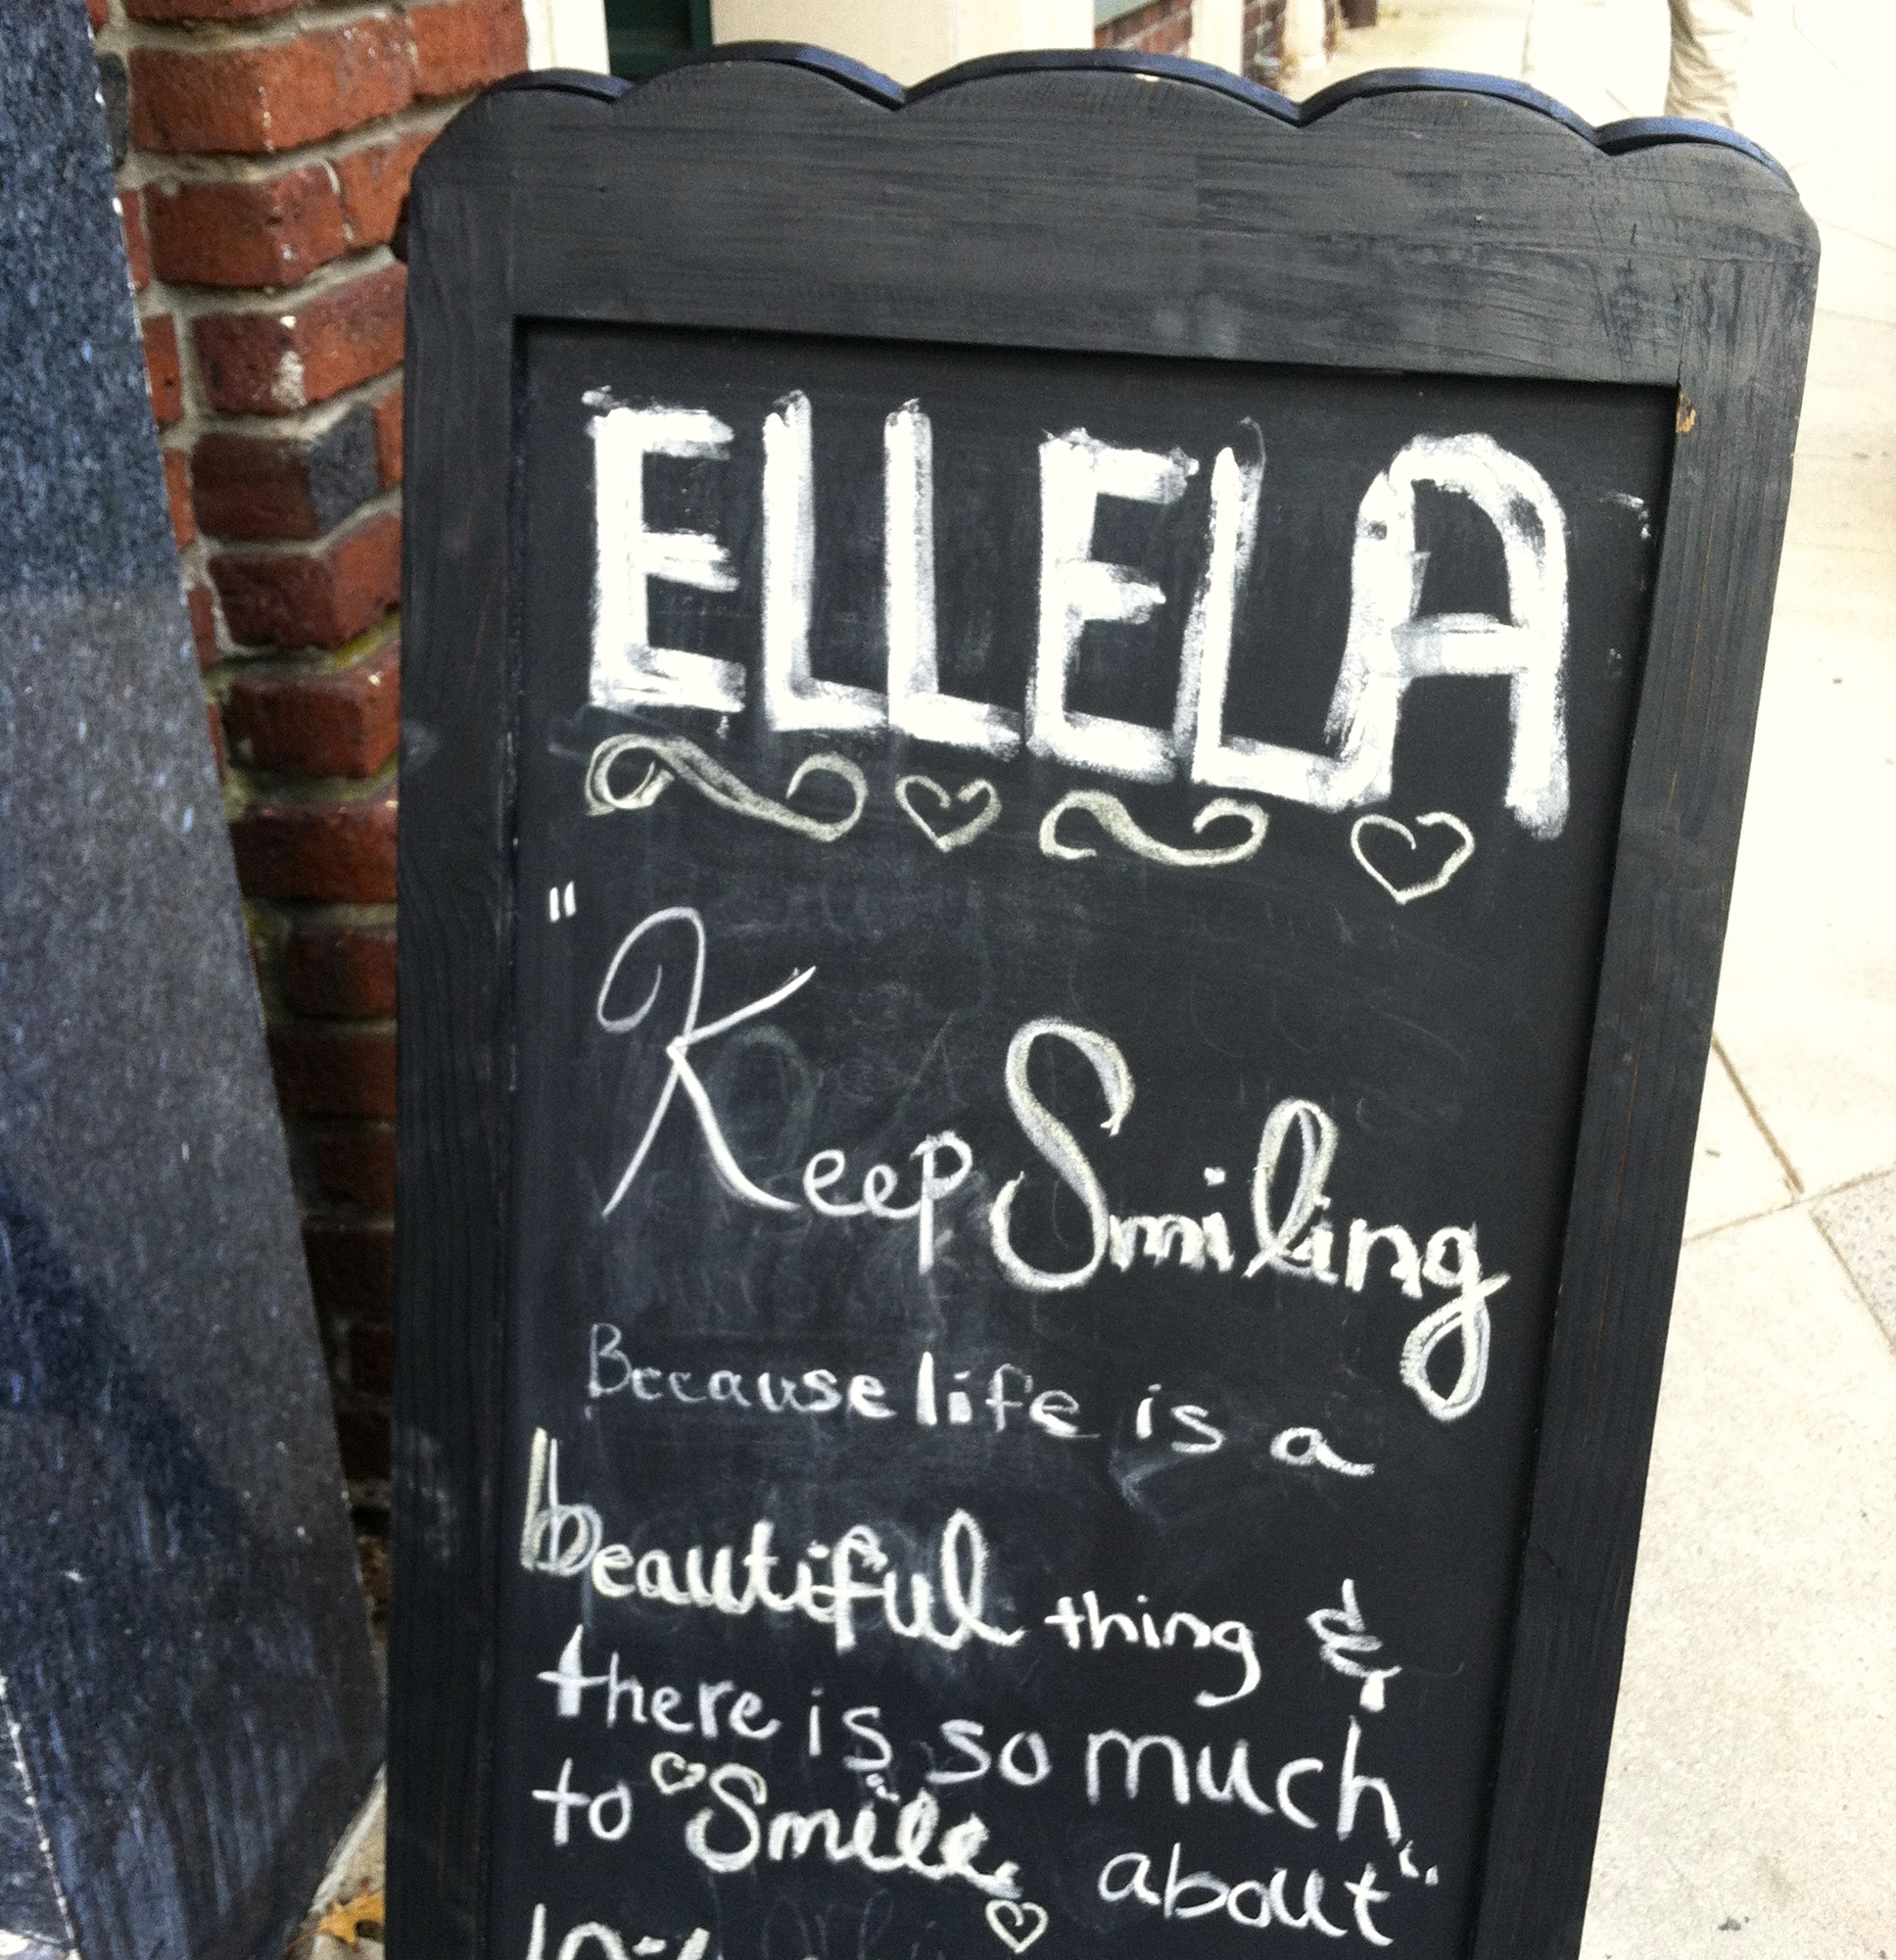 ELLELA
"Keep Smiling
Because life is a
beautiful thing &
there is so much
to Smile about"